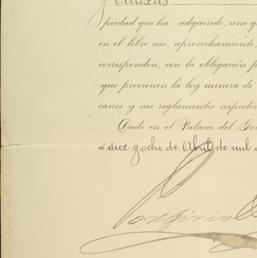 y Anexas
piedad que ha adquirido, sino q
en el libre uso, aprovechamiento,
corresponden, con la obligación p
que previenen la ley minera de
canos y sus reglamentos respectiv
Dado en el Palacio del Go
á diez y ocho de Abril de mil
Porfirio